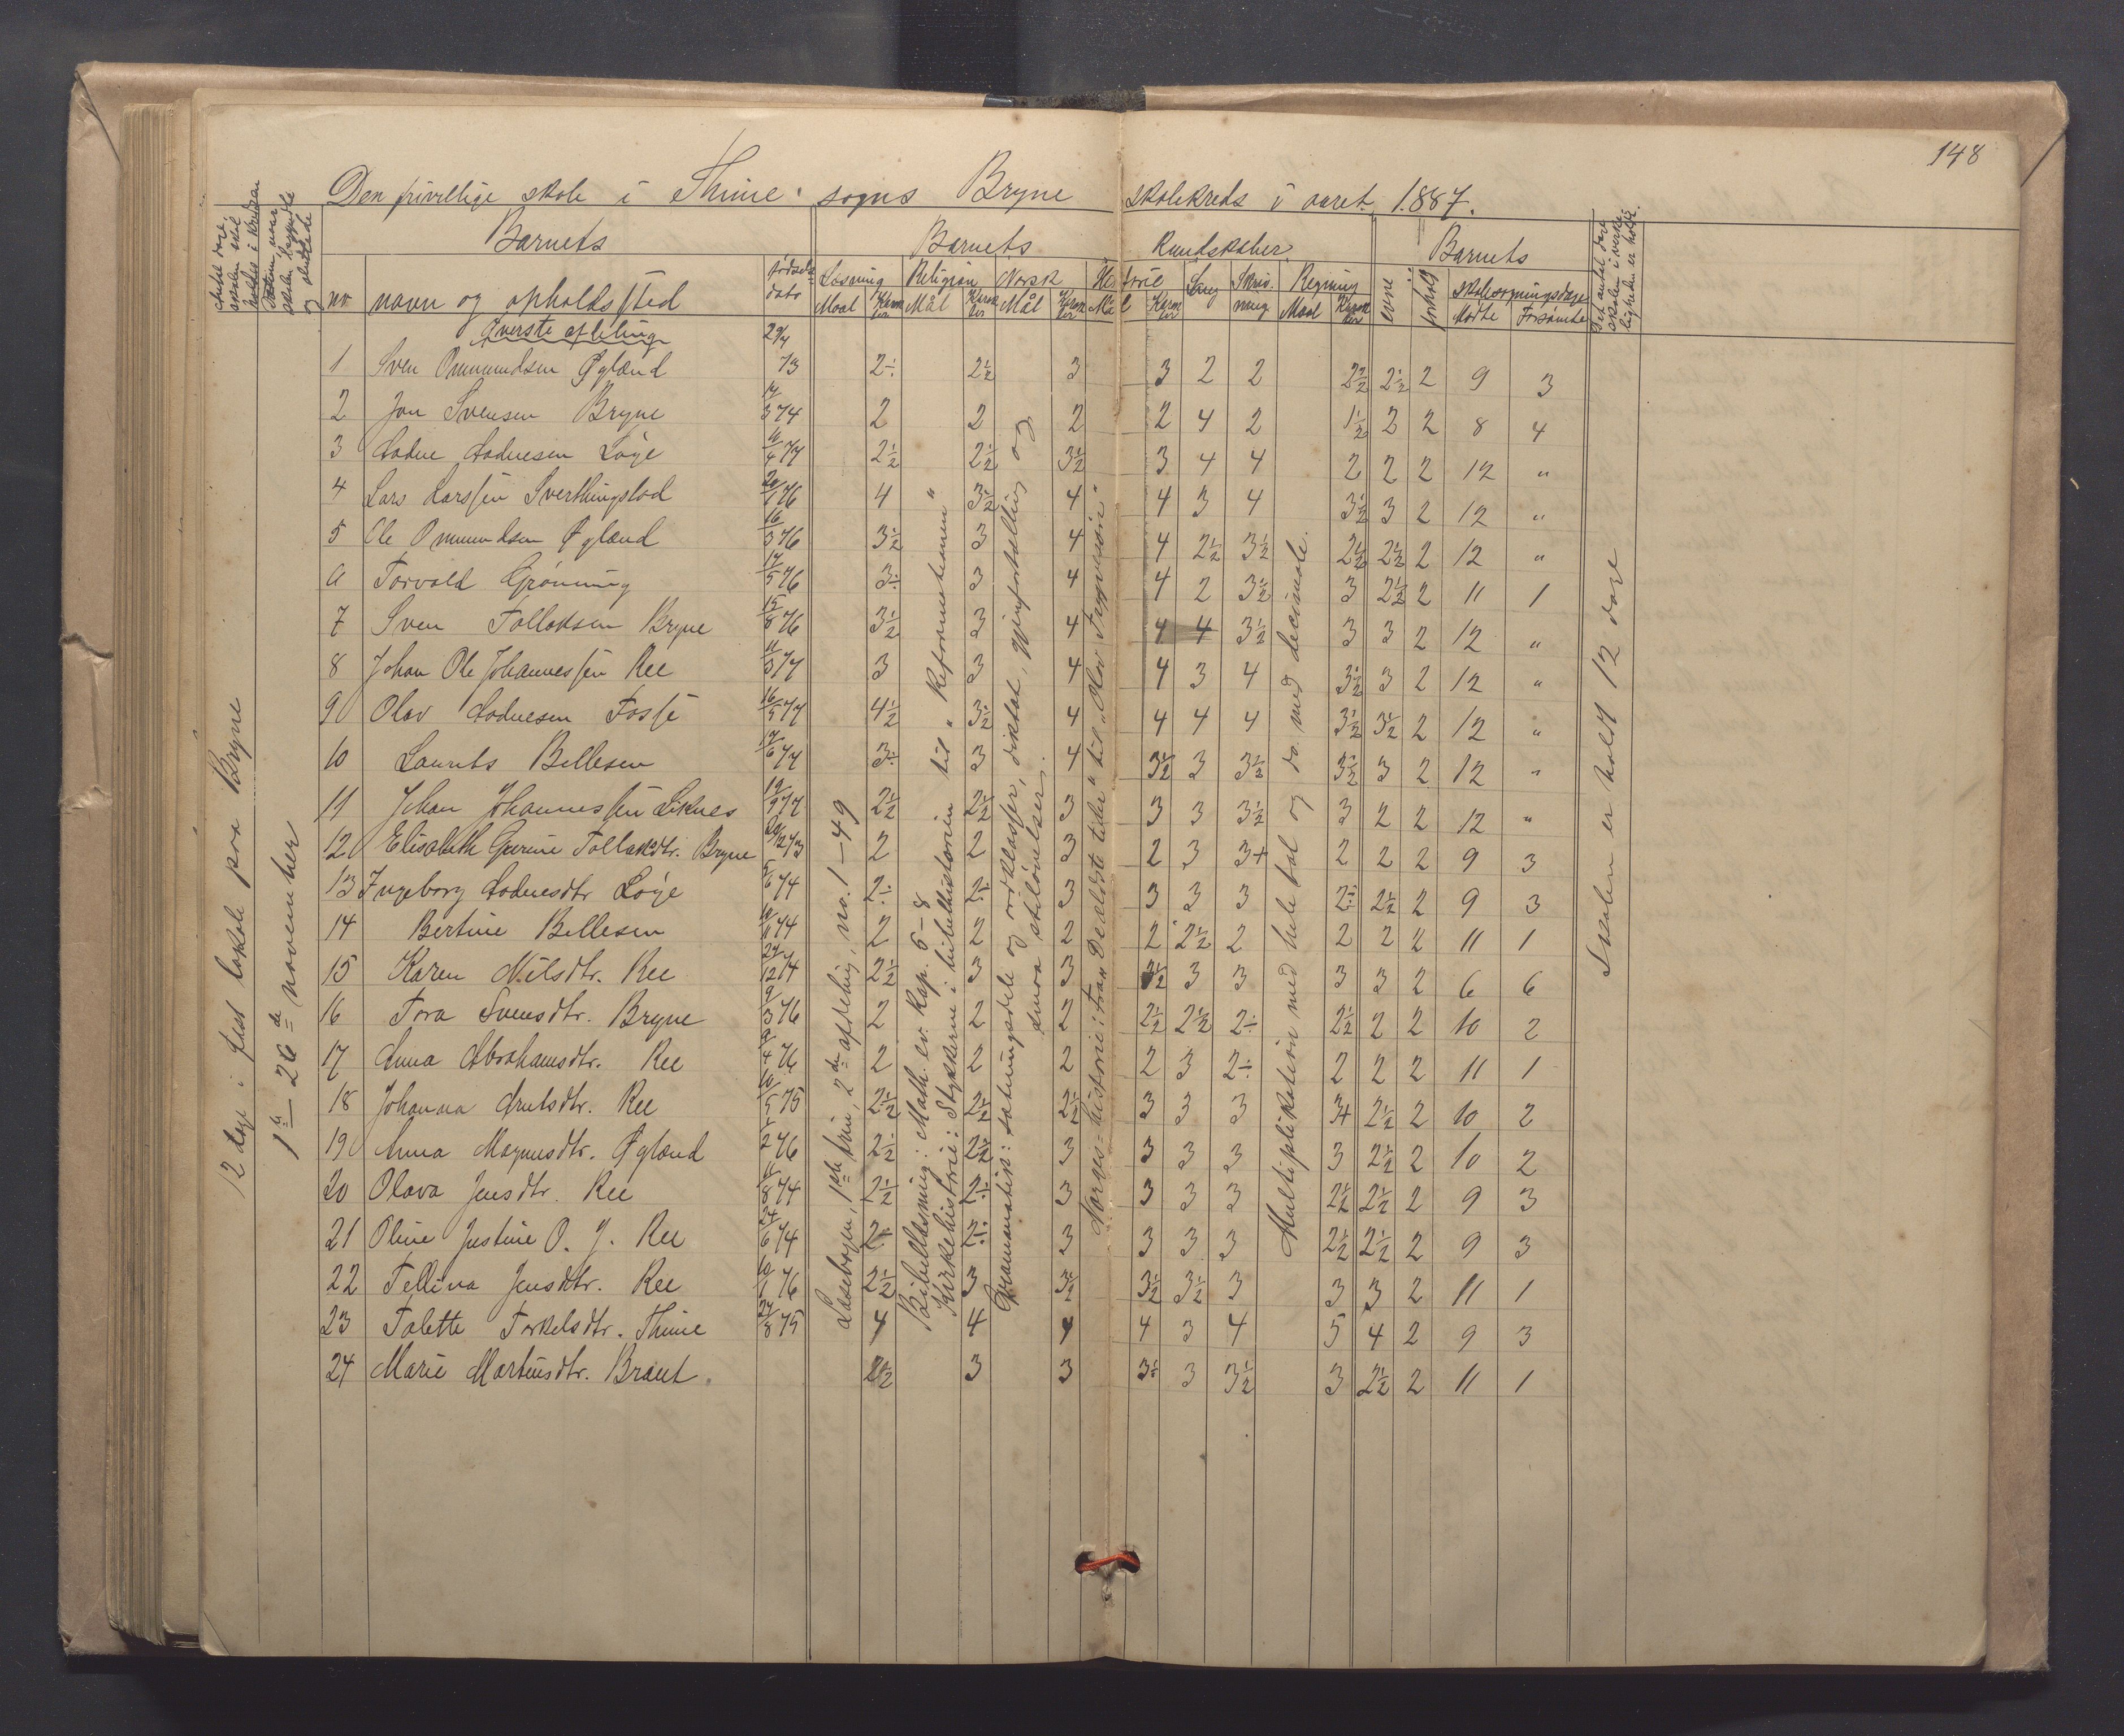 148
Den frivillige skole i Thime sogns Bryne skolekreds i aaret 1887.
Antal dage, skolen skal holdes i kredsen
Datum, naar skolen begyndte og sluttede
Barnets
Barnets Kundskaber
Barnets
Det antal dage skolen i virkeligheden er holdt.
no navn og opholdssted fødselsdato
Læsning Religion Norsk Historie Sang Skrivning Regning evne forhold skolesøgningsdage
Maal Karakter Mål Karakter Mål Karakter Mål Karakter Maal Karakter Mødte Forsømte
Øverste afdeling
1 Sven Ommundsen Øglænd 29/4 73 2÷ 2½ 3 3 2 2 2½ 2½ 2 9 3
2 Jon Svensen Bryne 14/3 74 2 2 2 2 4 2 1½ 2 2 8 4
3 Aadne Aadnesen Løge 11/4 77 2½ 2½ 3½ 3 4 4 2 2 2 12 "
4 Lars Larssen Sverthingstad 20/1 76 4 3½ 4 4 3 4 3½ 3 2 12 "
5 Ole Ommundsen Øglænd 16/3 76 3½ 3 4 4 2½ 3½ 2½ 2½ 2 12 "
6 Torvald Grönning 17/5 76 3÷ 3 4 4 2 3½ 3 2½ 2 11 1
7 Sven Tollaksen Bryne 15/8 76 3½ 3 4 4 4 3½ 3 3 2 12 "
8 Johan Ole Johannessen Ree 11/3 77 3 3 4 4 3 4 3½ 3 2 12 "
9 Olav Aadnesen Fosse 16/5 77 4½ 3½ 4 4 4 4 3½ 3½ 2 12 "
10 Laurits Bellesen 17/6 77 3÷ 3 4 3½ 3 3½ 3½ 3 2 12 "
11 Johan Johannessen Liknes 19/9 77 2½ 2½ 3 3 3 3½ 3 2 2 12 "
12 Elisabeth Gurine Tollaksdtr. Bryne 20/12 73 2 2 3 2 3 3+ 2 2 2 9 3
13 Ingeborg Aadnesdtr Løge 5/6 74 2÷ 2÷ 3 3 3 3 2÷ 2½ 2 9 3
14 Bertine Bellesen 10/11 74 2 2 2 2 2½ 2 2 2 2 11 1
15 Karen Nilsdtr. Ree 27/12 74 2½ 3 3 3½ 3 3 3 3 2 6 6
16 Tora Svensdtr. Bryne 9/3 76 2 2 2 2½ 2½ 2÷ 2½ 2 2 10 2
17 Anna Abrahamsdtr. Ree 8/4 76 2 2 2 2 3 2÷ 2 2 2 11 1
18 Johanna Arntsdtr. Ree 10/5 75 2½ 2½ 2½ 3 3 3 3+ 2½ 2 10 2
19 Anna Magnusdtr. Øglænd 2 76 2½ 2½ 3 3 3 3 3 2½ 2 10 2
20 Olava Jensdtr. Ree 11/8 74 2½ 2÷ 3 3 3 3 2½ 2½ 2 9 3
21 Oline Justine O. J. Ree 24/6 74 2÷ 2÷ 3 3 3 3 2½ 2½ 2 9 3
22 Tellina Jensdtr. Ree 10/1 76 2½ 3 3½ 3½ 3½ 3 3 3 2 11 1
23 Talette Torkelsdtr. Thime 27/8 75 4 4 4 4 3 4 5 4 2 9 3
24 Marie Martinsdtr. Braut. 2½ 3 3 3÷ 3 3½ 3 2½ 2 11 1
12 dage i leiet lokale paa Bryne
1ste – 26de november
Læsebogen, 1ste trin, 2den afdeling, no. 1–49
Bibellæsning: Math. ev. kap. 5–8
Kirkehistorie: Stykkerne i bibelhistorien til "Reformationen"
Grammatik: sætningsdele og ordklasser, diktat, gjenfortælling og
andre stiløvelser.
Norges-historie: Fra "De ældste tider" til "Olav Trygvessön"
Multiplikation med hele tal og do. med decimale.
Skolen er holdt 12 dage